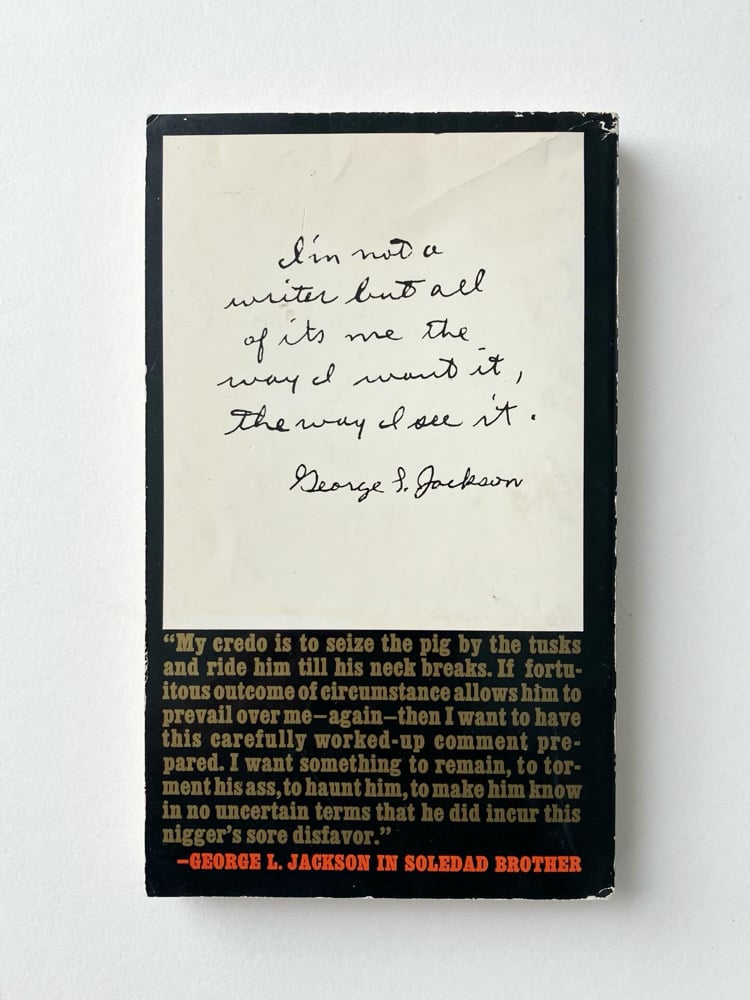 I'm not a
writer but all
of its me the
way I want it,
the way I see it.
George L. Jackson
“My credo is to seize the pig by the tusks
and ride him till his neck breaks. If fortu-
itous outcome of circumstance allows him to
prevail over me—again—then I want to have
this carefully worked-up comment pre-
pared. I want something to remain, to tor-
ment his ass, to haunt him, to make him know
in no uncertain terms that he did incur this
nigger's sore disfavor.”
—GEORGE L. JACKSON IN SOLEDAD BROTHER